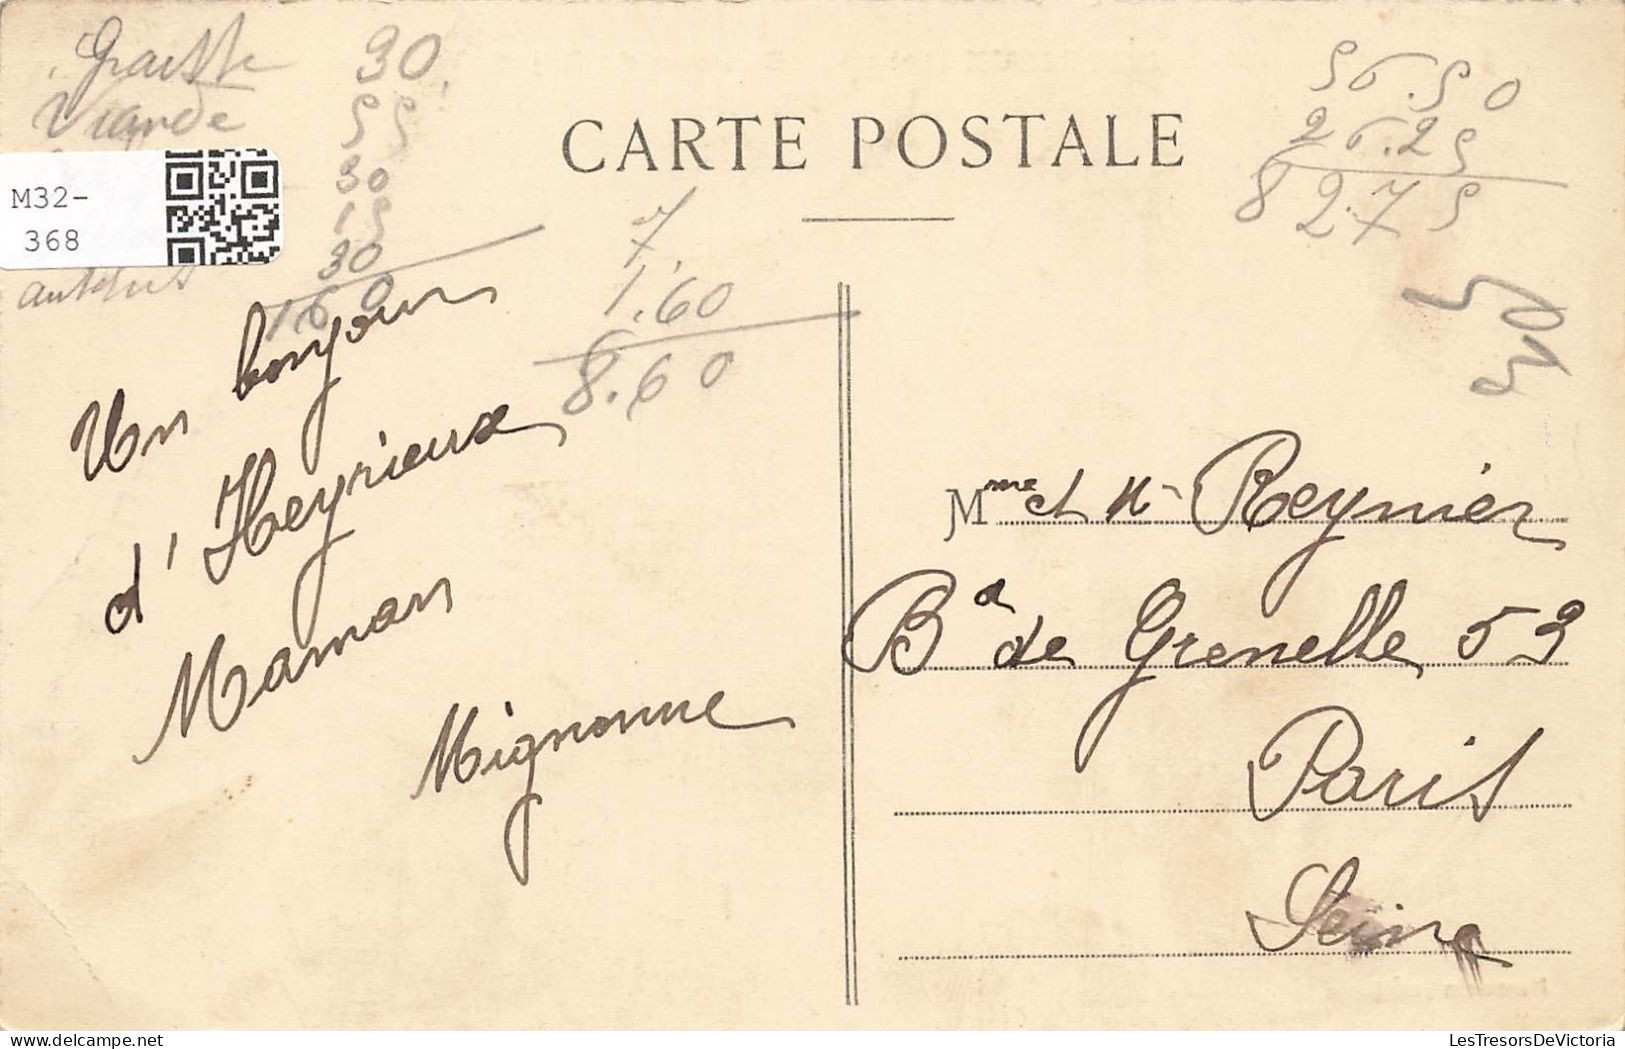 CARTE POSTALE
Graisse 30
Viande 55
30
15
30
160
7.
1.60
8.60
56.50
26.25
82.75
M32-
368
Un bonjour
d'Heyrieux
Maman
Mignonne
Mme et Mr Reynier
Bd de Grenelle 53
Paris
Seine
LesTresorsDeVictoria.com